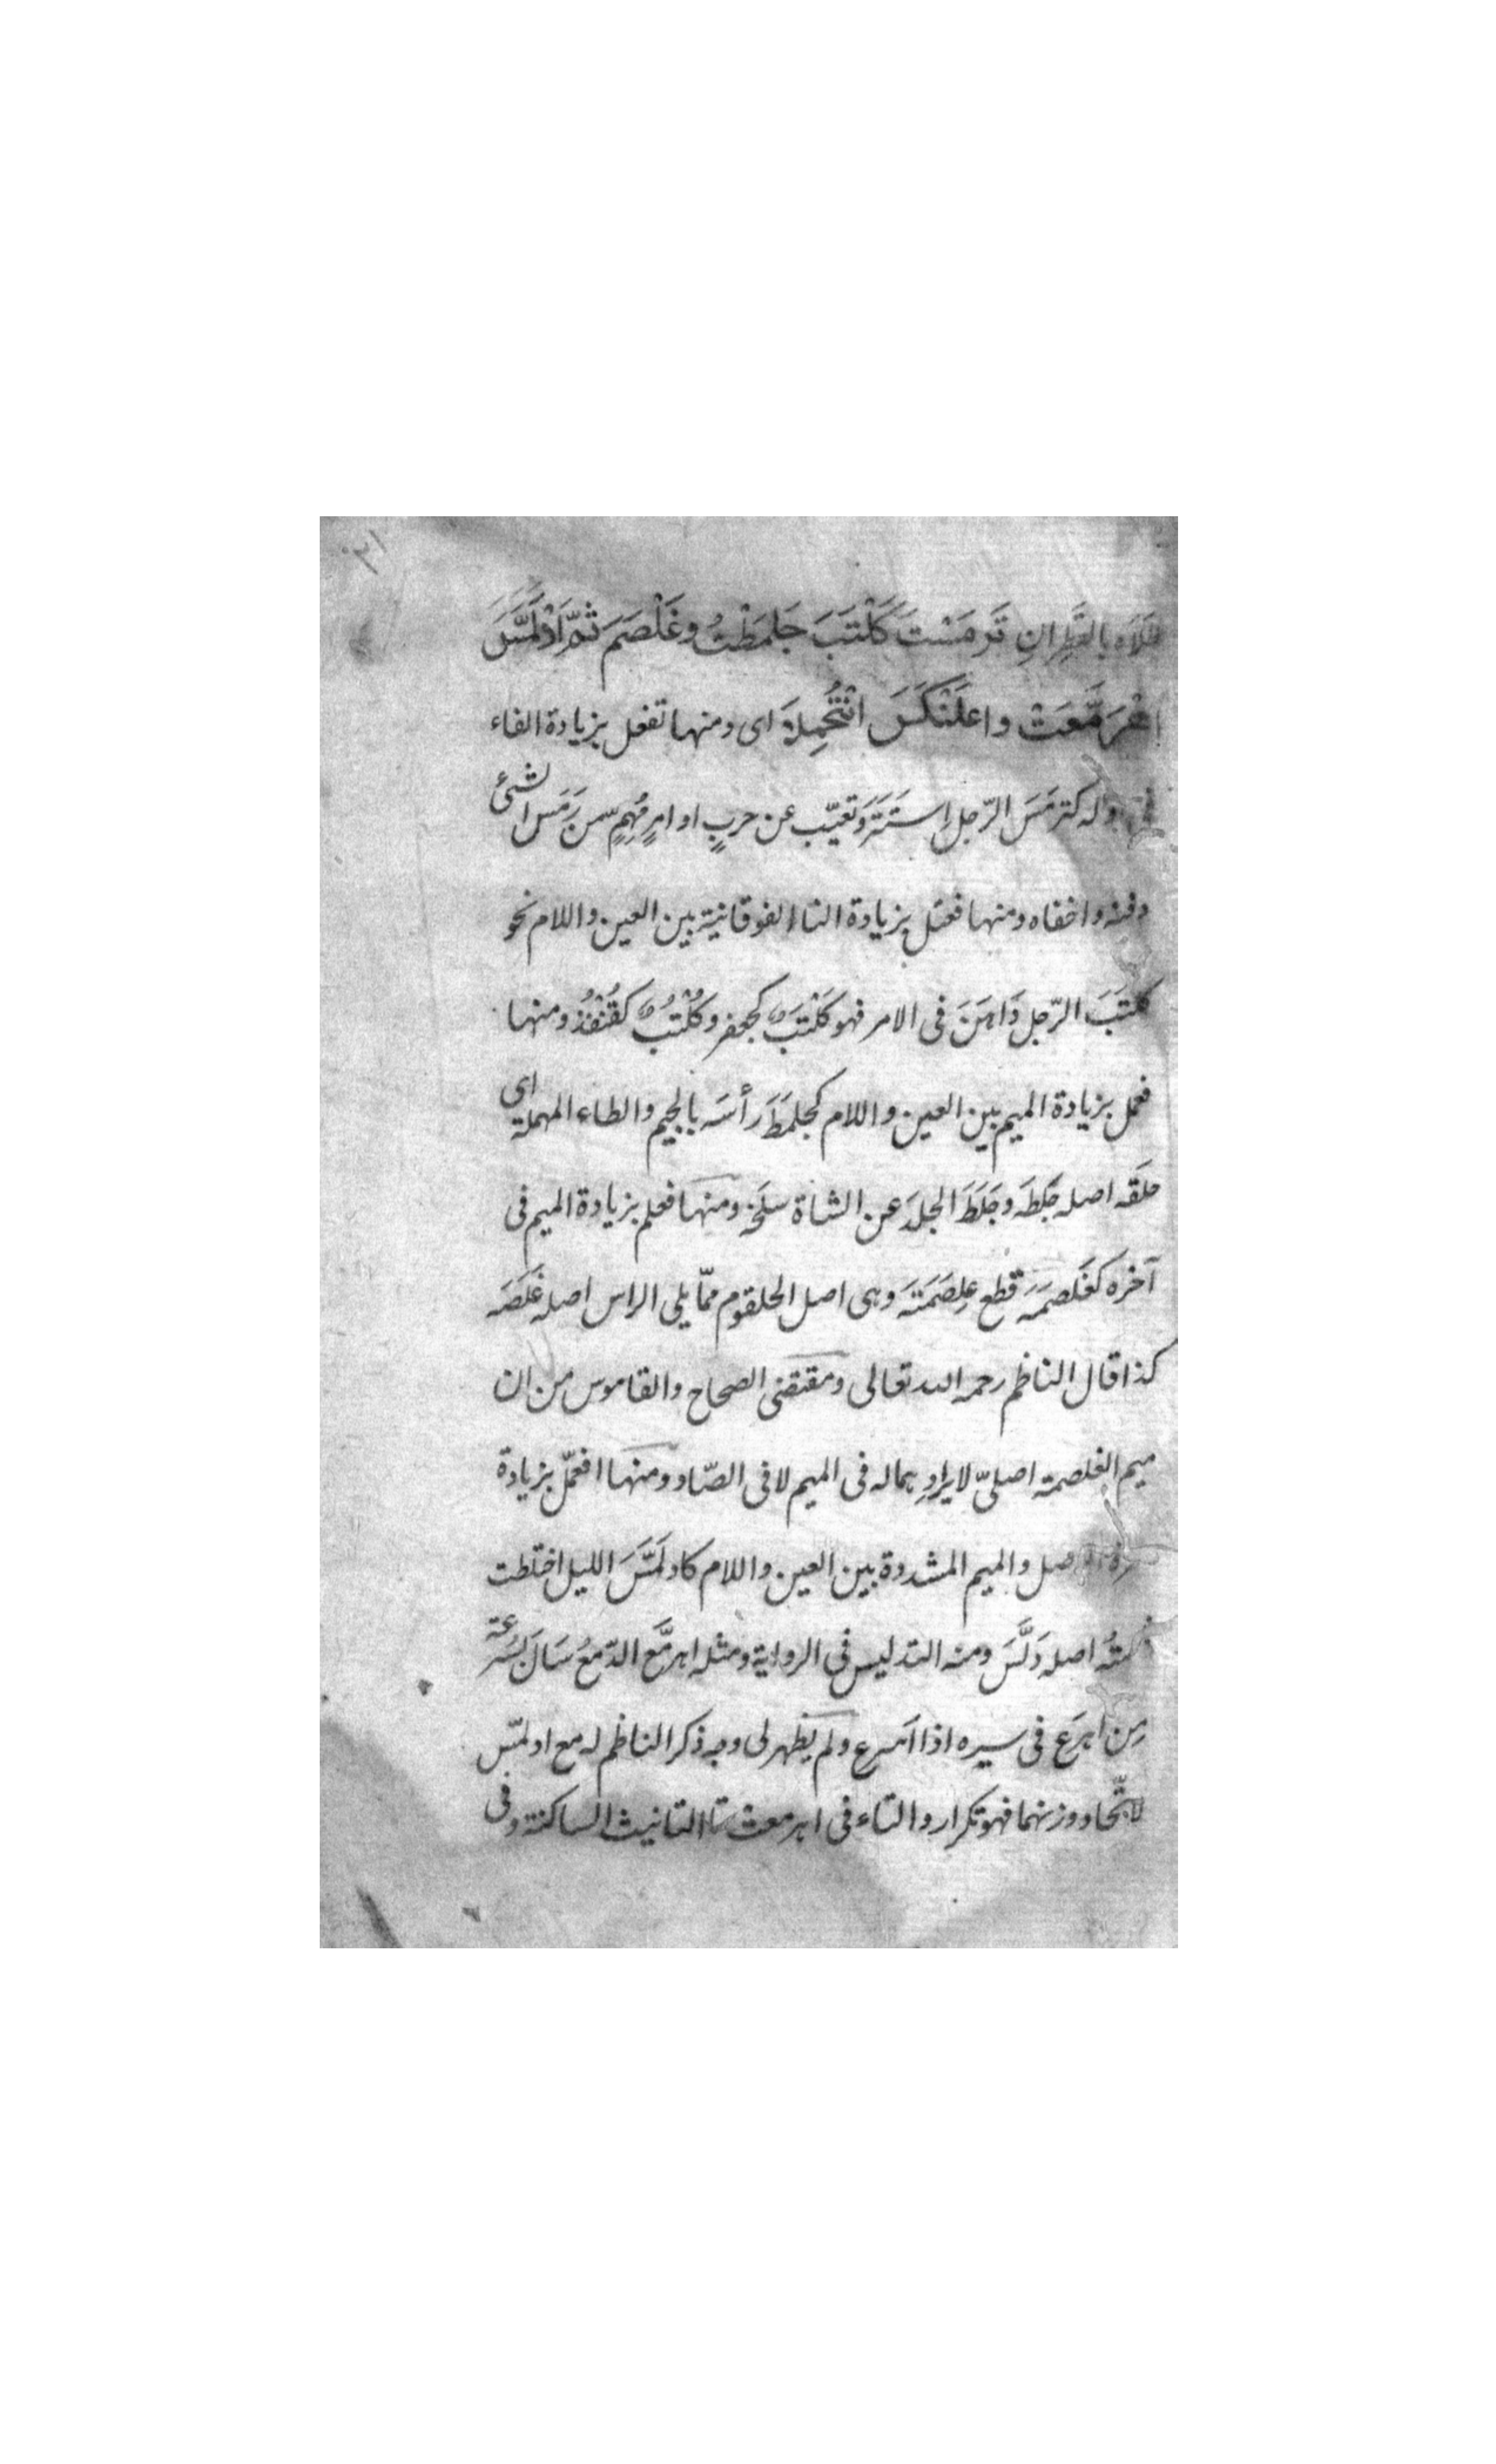 طلاه بالقَطِرانِ تَرمَسْتَ كَلْتَبَ جَلمَطْتُ وغَلْصَمَ ثمّ ادْلَمَّسَ
اهْرَمَّعَتْ واعلَنْكَسَ انْتُخِلَا اى ومنها تفعل بزيادة التاء
اوله كترمَسَ الرّجل اِستَتَرَ وتغيّب عن حربٍ او امرٍ مُهِمٍّ من رَمَسَ الشئ
دفنه واخفاه ومنها فعتل بزيادة التاا الفوقانية بين العين واللام نحو
كَلتَبَ الرّجل دَاهَنَ فى الامر فهو كَلْتَبٌ كجعفر وكُلْتُبٌ كقُنْفُذٍ ومنها
فعمل بزيادة الميم بين العين واللام كجلمَطَ رأسَه بالجيم والطاء المهملة اى
حلقَه اصله جَلَطَه وجَلَطَ الجلدَ عن الشاة سلَخَه ومنها فعلم بزيادة الميم فى
آخره كغَلصَمَه قطع غلِصَمَتَه وهى اصل الحلقوم ممّا يلى الراس اصله غَلَصَه
كذا قال الناظم رحمه الله تعالى ومقتضى الصحاح والقاموس من ان
ميم الغلصمة اصلىّ لايرادِهما له فى الميم لا فى الصّاد ومنها افعمّل بزيادة
همزة الوصل والميم المشددة بين العين واللام كادلَمَّسَ الليل اختلطت
ظلمتُه اصله دَلَّسَ ومنه التدليس فى الرواية ومثله اهرمَّع الدّمعُ سَالَ بسُرعة
مِن اهرَع فى سيره اذا اَسرع ولم يظهر لى وجه ذكر الناظم له مع ادلمّس
لاتّحاد وزنهما فهو تكرار والتاء فى اهرمعت تاا التانيث الساكنة وفى